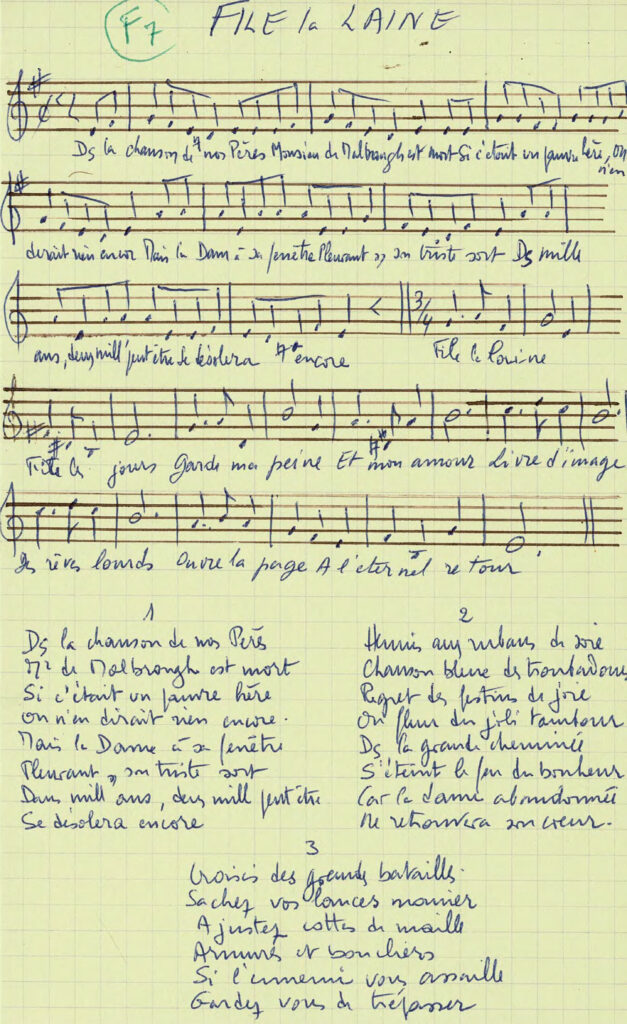 F7
FILE la LAINE
Ds la chanson de nos Pères Monsieu de Malbrough est mort Si c'était un pauvre hère, On
n'en
dirait rien encor Mais la Dam à sa fenêtre Pleurant sr son triste sort Ds mille
ans, deux mill' peut être Se désolera encore
3/4
File la laine
File les jours Garde ma peine Et mon amour Livre d'image
Des rêves lourds Ouvre la page A l'éternel retour
1
Ds la chanson de nos Pères
Mr de Malbrough est mort
Si c'était un pauvre hère
On n'en dirait rien encore.
Mais la Dame à sa fenêtre
Pleurant sr son triste sort
Dans mill ans, deux mill peut être
Se désolera encore
2
Hennis aux rubans de soie
Chanson bleue des troubadours
Regret des festins de joie
Ou fleur du joli tambour
Ds la grande cheminée
S'éteint le feu du bonheur
Car la dame abandonnée
Ne retrouvera son coeur.
3
Croisés des grandes batailles.
Sachez vos lances manier
Ajustez cottes de maille
Armures et boucliers
Si l'ennemi vous assaille
Gardez vous de trépasser